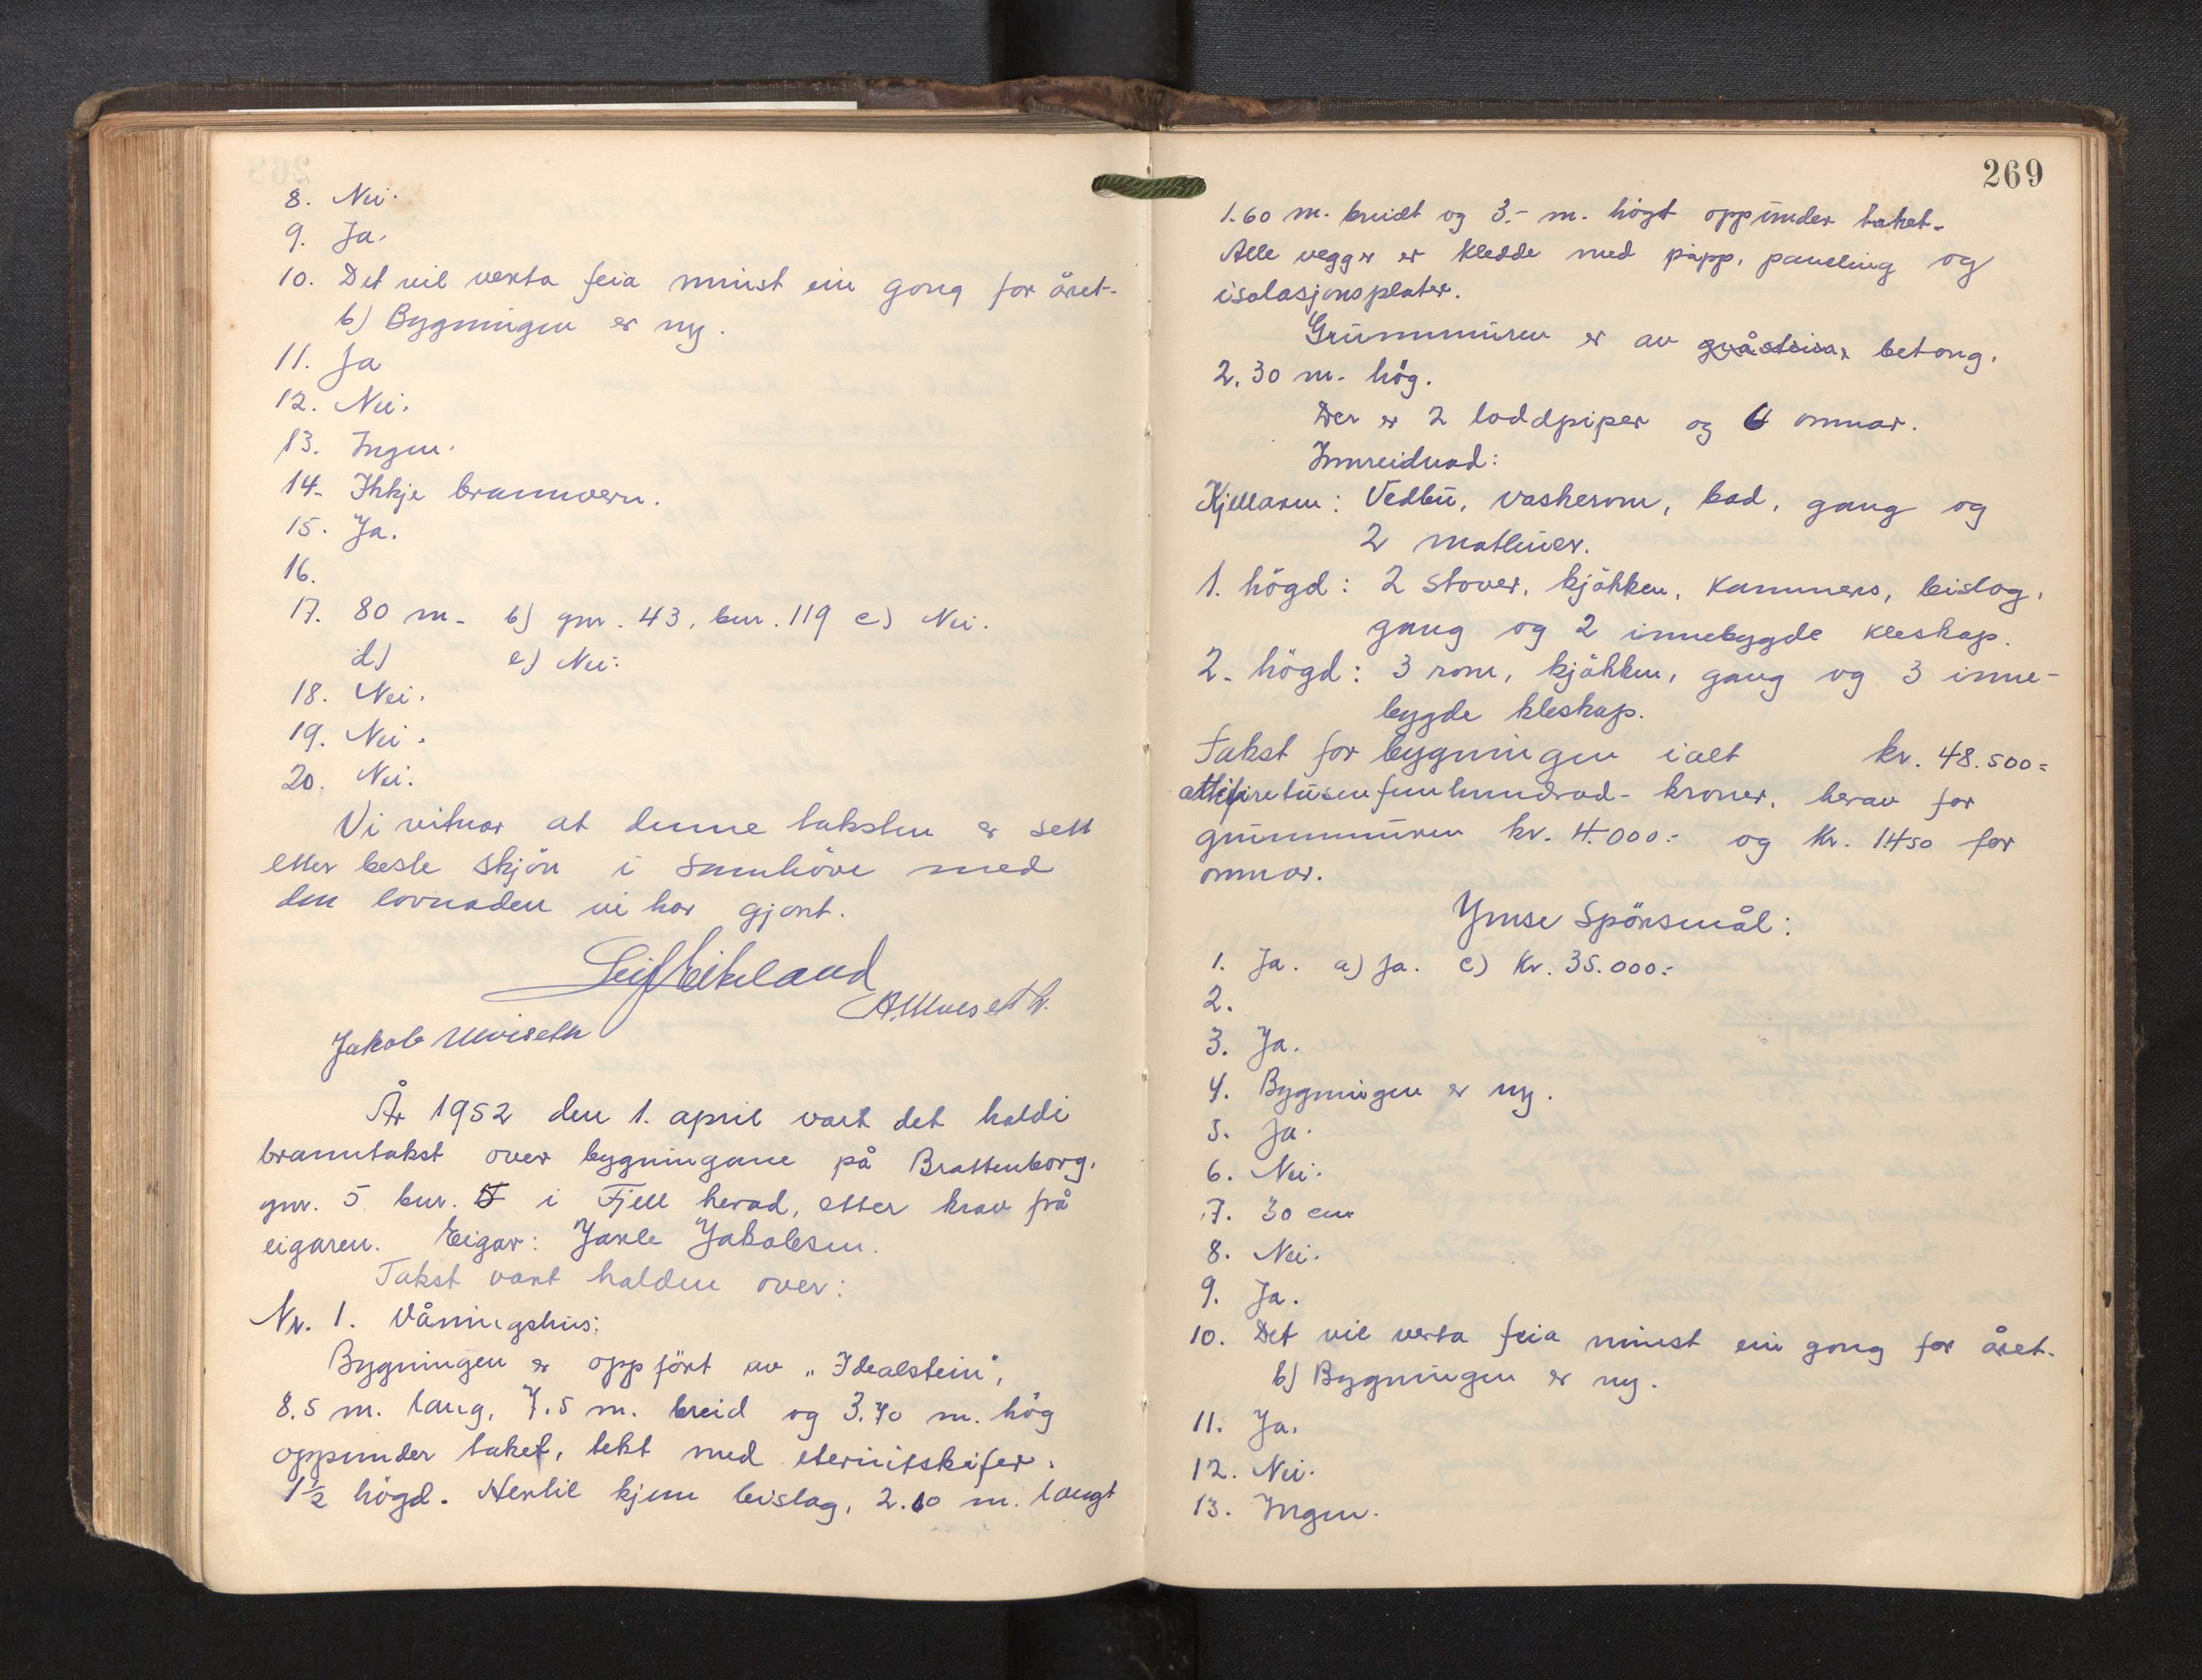 8. Nei.
9. Ja.
10. Det vil verta feia minst ein gong for året.
b) Bygningen er ny.
11. Ja
12. Nei.
13. Ingen.
14. Ikkje brannvern.
15. Ja.
16.
17. 80 m. b) gnr. 43, bnr. 119 c) Nei.
d) e) Nei.
18. Nei.
19. Nei.
20. Nei.
Vi vitnar at denne taksten er sett
etter beste skjön i samhöve med
den lovnaden vi har gjort.
Leif Eikeland
Jakob
År 1952 den 1. april vart det haldi
branntakst over bygningane på Brattenborg,
gnr. 5 bnr. i Fjell herad, etter krav frå
eigaren. Eigar: Jarle Jakobsen.
Takst vart halden over:
Nr. 1. Våningshus:
Bygningen er oppfört av „Idealstein",
8.5 m. lang, 7.5 m. breid og 3.70 m. hög
oppunder taket, tekt med eternitskifer.
1½ högd. Hertil kjem bislag, 2.10 m. langt
269
1.60 m. breidt og 3.- m. högt oppunder taket.
Alle vegger er kledde med papp, paneling og
isolasjonsplater.
Grunnmuren er av gråstein, betong.
2.30 m. hög.
Der er 2 loddpiper og 6 omnar.
Innreidnad:
Kjellaren: Vedbu, vaskerom, bad, gang og
2 matbuer.
1. högd: 2 stover, kjökken, kammers, bislag,
gang og 2 innebygde kleskap.
2. högd: 3 rom, kjökken, gang og 3 inne-
bygde kleskap.
Takst for bygningen ialt kr. 48.500=
åttifiretusenfemhundrad- kroner, herav for
grunnmuren kr. 4.000:- og kr. 1450 for
omnar.
Ymse Spörsmål:
1. Ja. a) Ja. c) Kr. 35.000:-
2.
3. Ja.
4. Bygningen er ny.
5. Ja.
6. Nei.
7. 30 cm
8. Nei.
9. Ja.
10. Det vil verta feia minst ein gong for året.
b) Bygningen er ny.
11. Ja.
12. Nei.
13. Ingen.